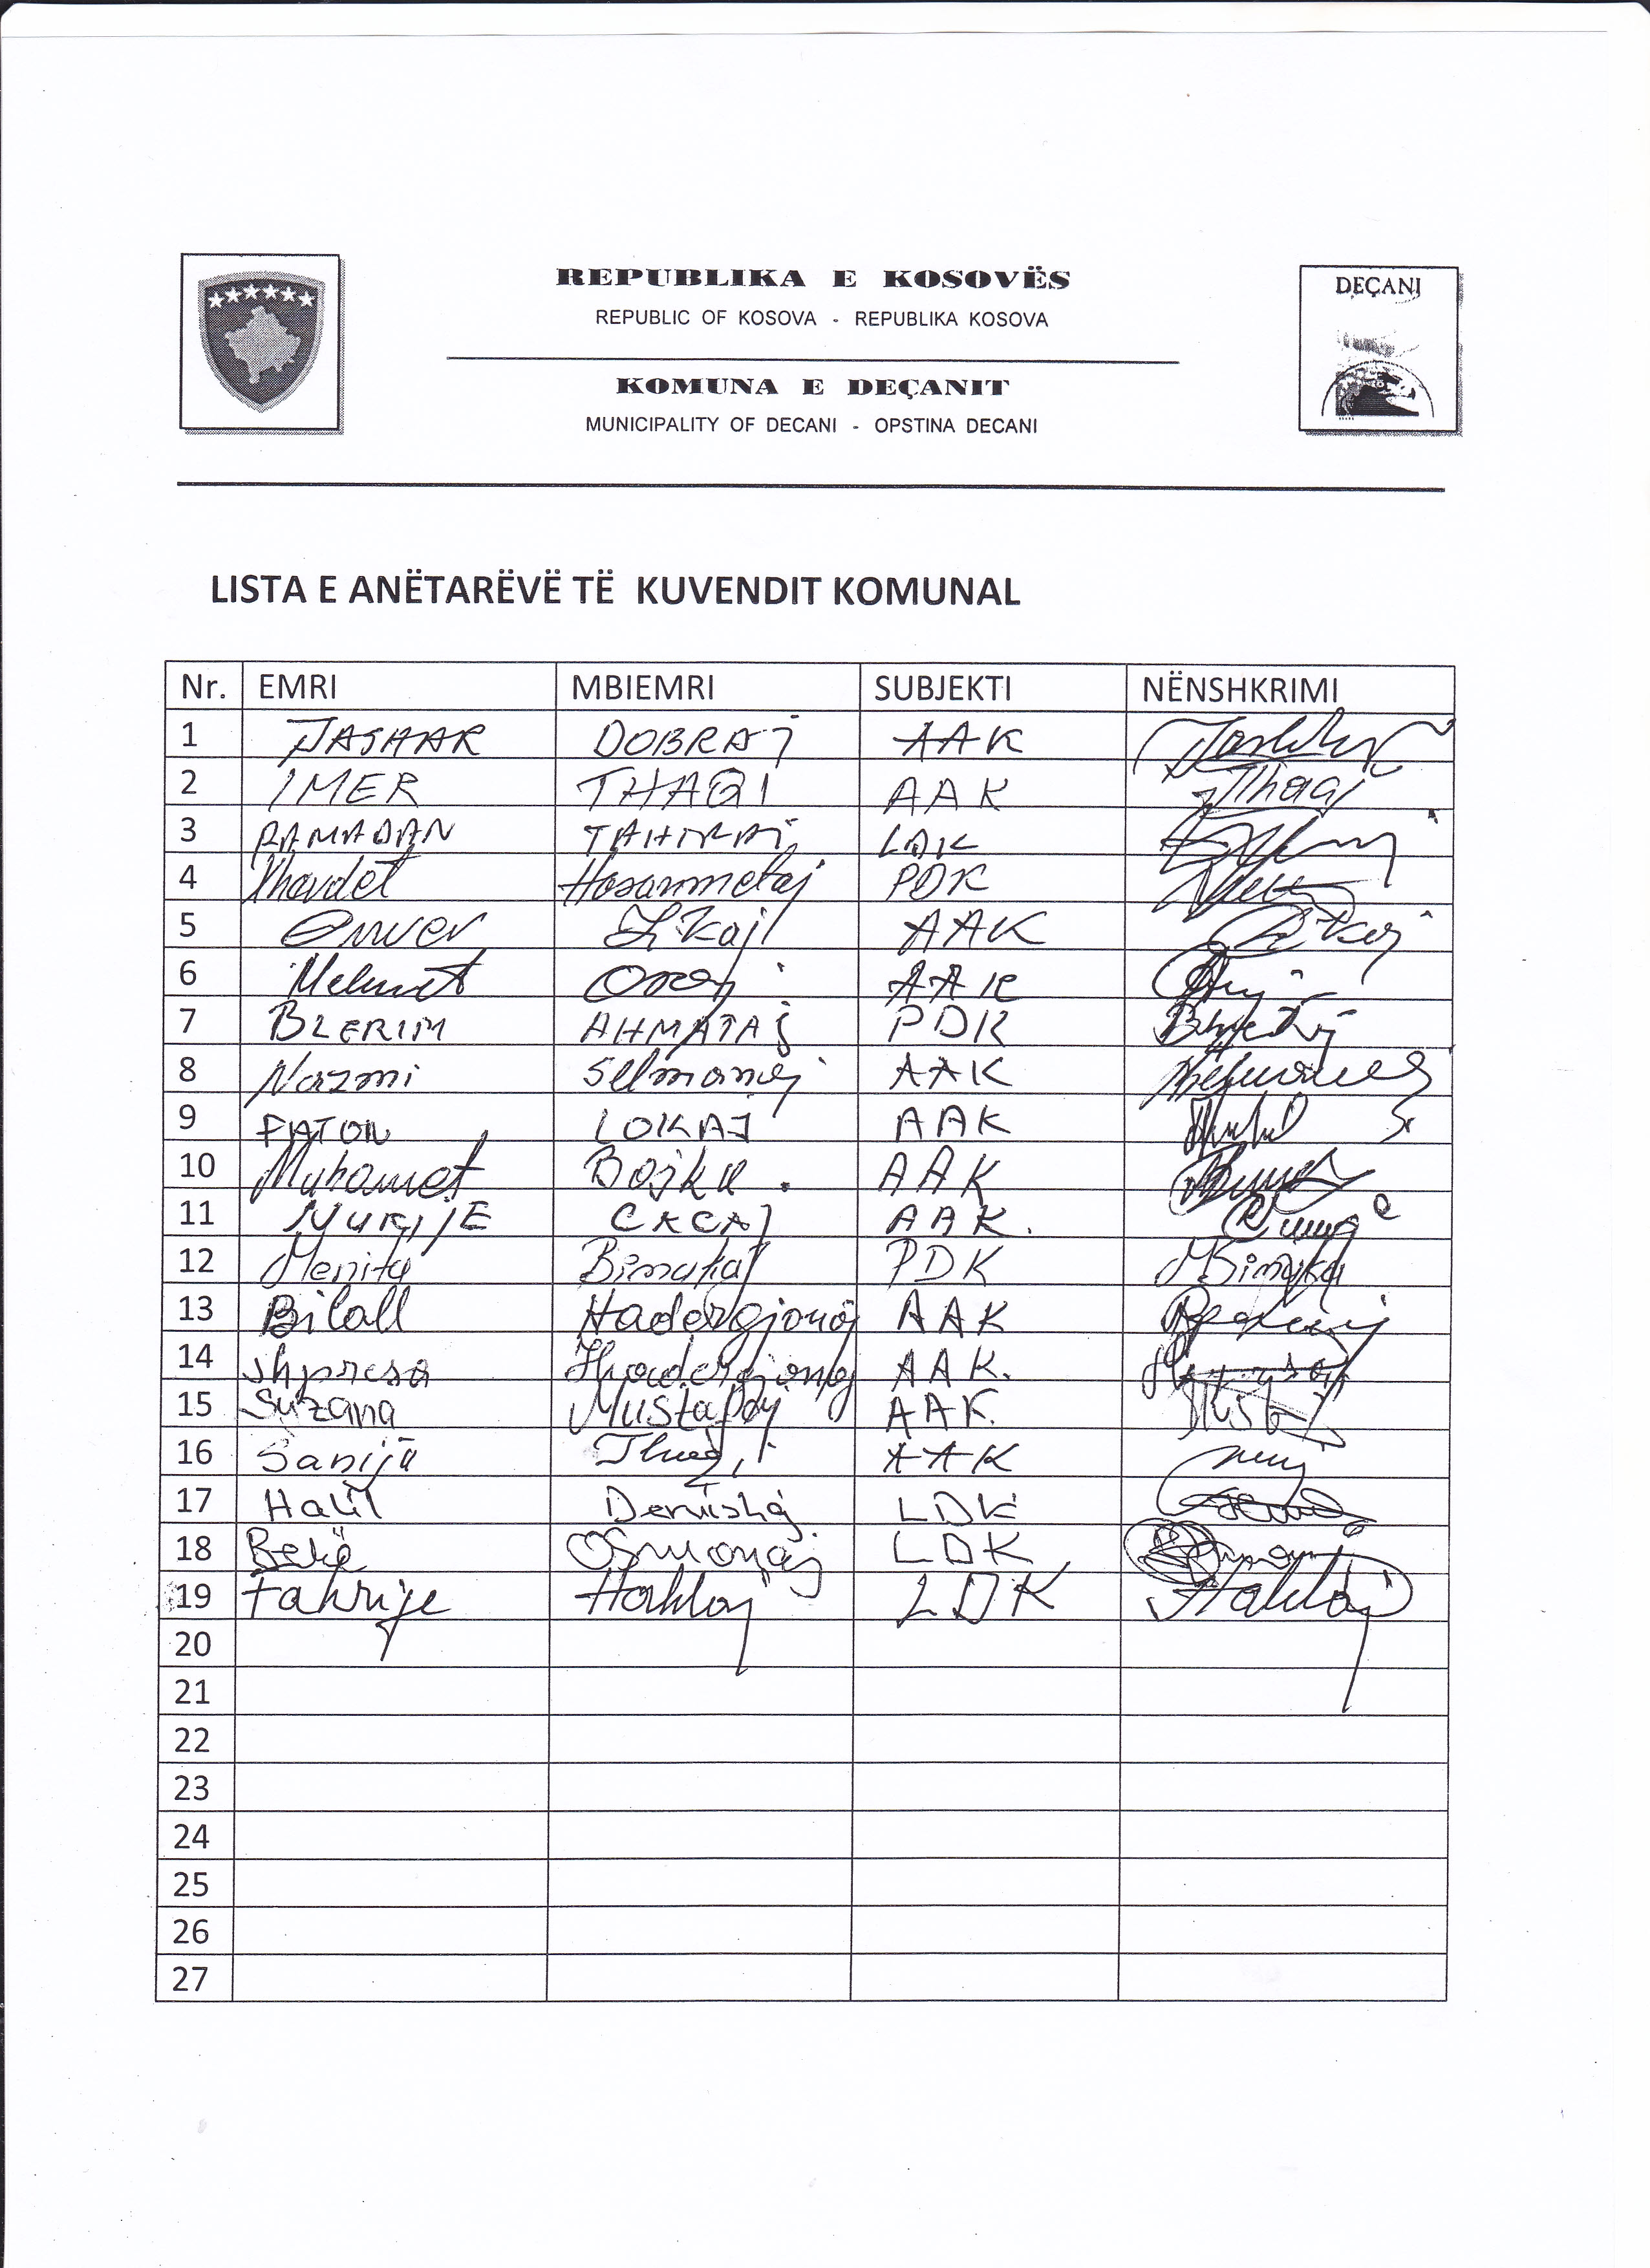 REPUBLIKA E KOSOVËS
DEÇANI
REPUBLIC OF KOSOVA - REPUBLIKA KOSOVA
KOMUNA E DEÇANIT
MUNICIPALITY OF DECANI - OPSTINA DECANI
LISTA E ANËTARËVË TË KUVENDIT KOMUNAL
Nr. EMRI MBIEMRI SUBJEKTI NËNSHKRIMI
1 JASHAR DOBRAJ AAK
2 IMER THAQI AAK Thaqi
3 RAMADAN TAHIRAJ LDK
4 Xhevdet Hasanmetaj PDK
5 Enver AAK
6 Mehmet AAK
7 BLERIM AHMATAJ PDK
8 Nazmi Selmanaj AAK
9 FATON LOKAJ AAK
10 Muhamet Bojku . AAK
11 CACAJ AAK.
12 Menita Bimakaj PDK MBimaka
13 Bilall Hadërgjonaj AAK
14 shpresa Hadergjonaj AAK.
15 Suzana Mustafaj AAK.
16 Sanija AAK
17 Halil Dervishaj LDK
18 Osmonaj LDK
19 Fahrije Haklaj LDK Haklaj
20
21
22
23
24
25
26
27